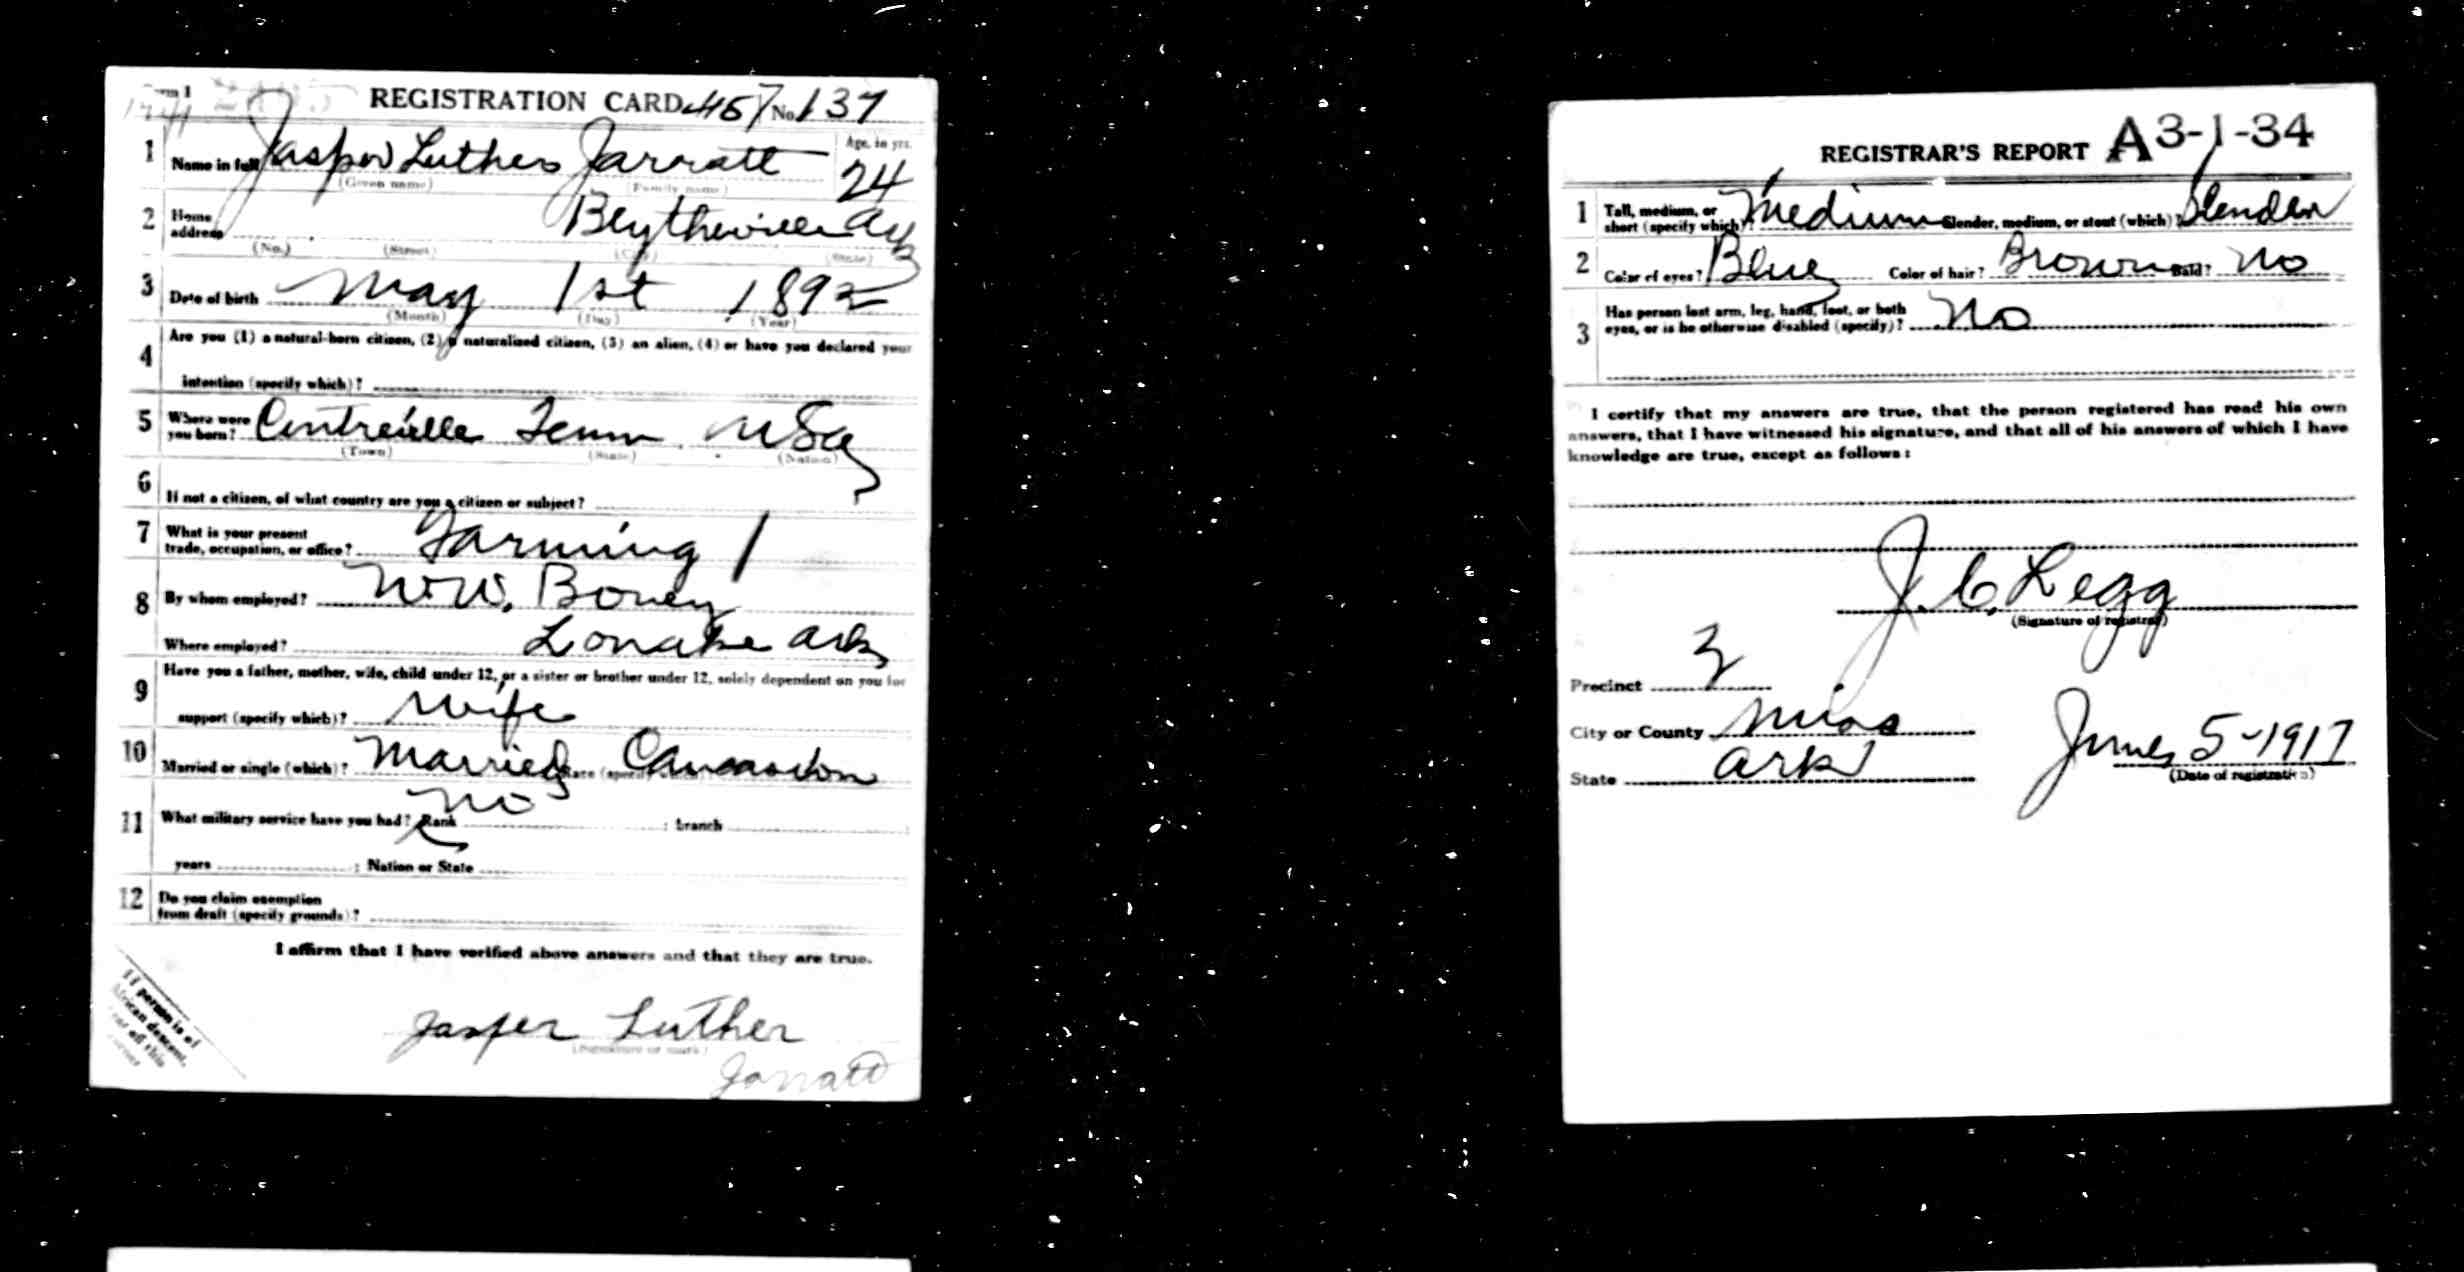 REGISTRATION CARD 457 No. 137
1 Name in full Jasper Luther Jarratt Age, in yrs. 24
(Given name) (Family name)
2 Home address Blytheville Ark
(No.) (Street) (City) (State)
3 Date of birth May 1st 1892
(Month) (Day) (Year)
4 Are you (1) a natural-born citizen, (2) a naturalized citizen, (3) an alien, (4) or have you declared your
intention (specify which)?
5 Where were you born? Centreville Tenn. USA
(Town) (State) (Nation)
6 If not a citizen, of what country are you a citizen or subject?
7 What is your present
trade, occupation, or office? Farming 1
8 By whom employed? W.W. Boney
Where employed? Lonake Ark
9 Have you a father, mother, wife, child under 12, or a sister or brother under 12, solely dependent on you for
support (specify which)? Wife
10 Married or single (which)? Married Race (specify Caucasion
11 What military service have you had? Rank No ; branch
years ; Nation or State
12 Do you claim exemption
from draft (specify grounds)?
I affirm that I have verified above answers and that they are true.
Jasper Luther
(Signature or mark)
Jarratt
If person is of
African descent,
tear off this
corner
REGISTRAR'S REPORT A3-1-34
1 Tall, medium, or
short (specify which)? Medium Slender, medium, or stout (which)? Slender
2 Color of eyes? Blue Color of hair? Brown Bald? No
3 Has person lost arm, leg, hand, foot, or both
eyes, or is he otherwise disabled (specify)? No
I certify that my answers are true, that the person registered has read his own
answers, that I have witnessed his signature, and that all of his answers of which I have
knowledge are true, except as follows:
J. C. Legg
(Signature of registrar)
Precinct 3
City or County Miss
State Ark
June 5-1917
(Date of registration)